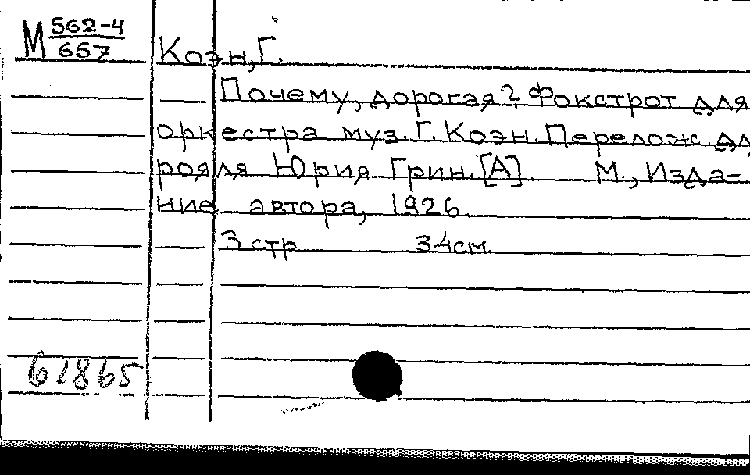 М 562-4
657
Коэн, Г.
Почему, дорогая? Фокстрот для
оркестра муз. Г. Коэн. Перелож. для
рояля Юрия Грин. [А]. М., Изда-
ние автора, 1926.
3 стр 34 см.
61865